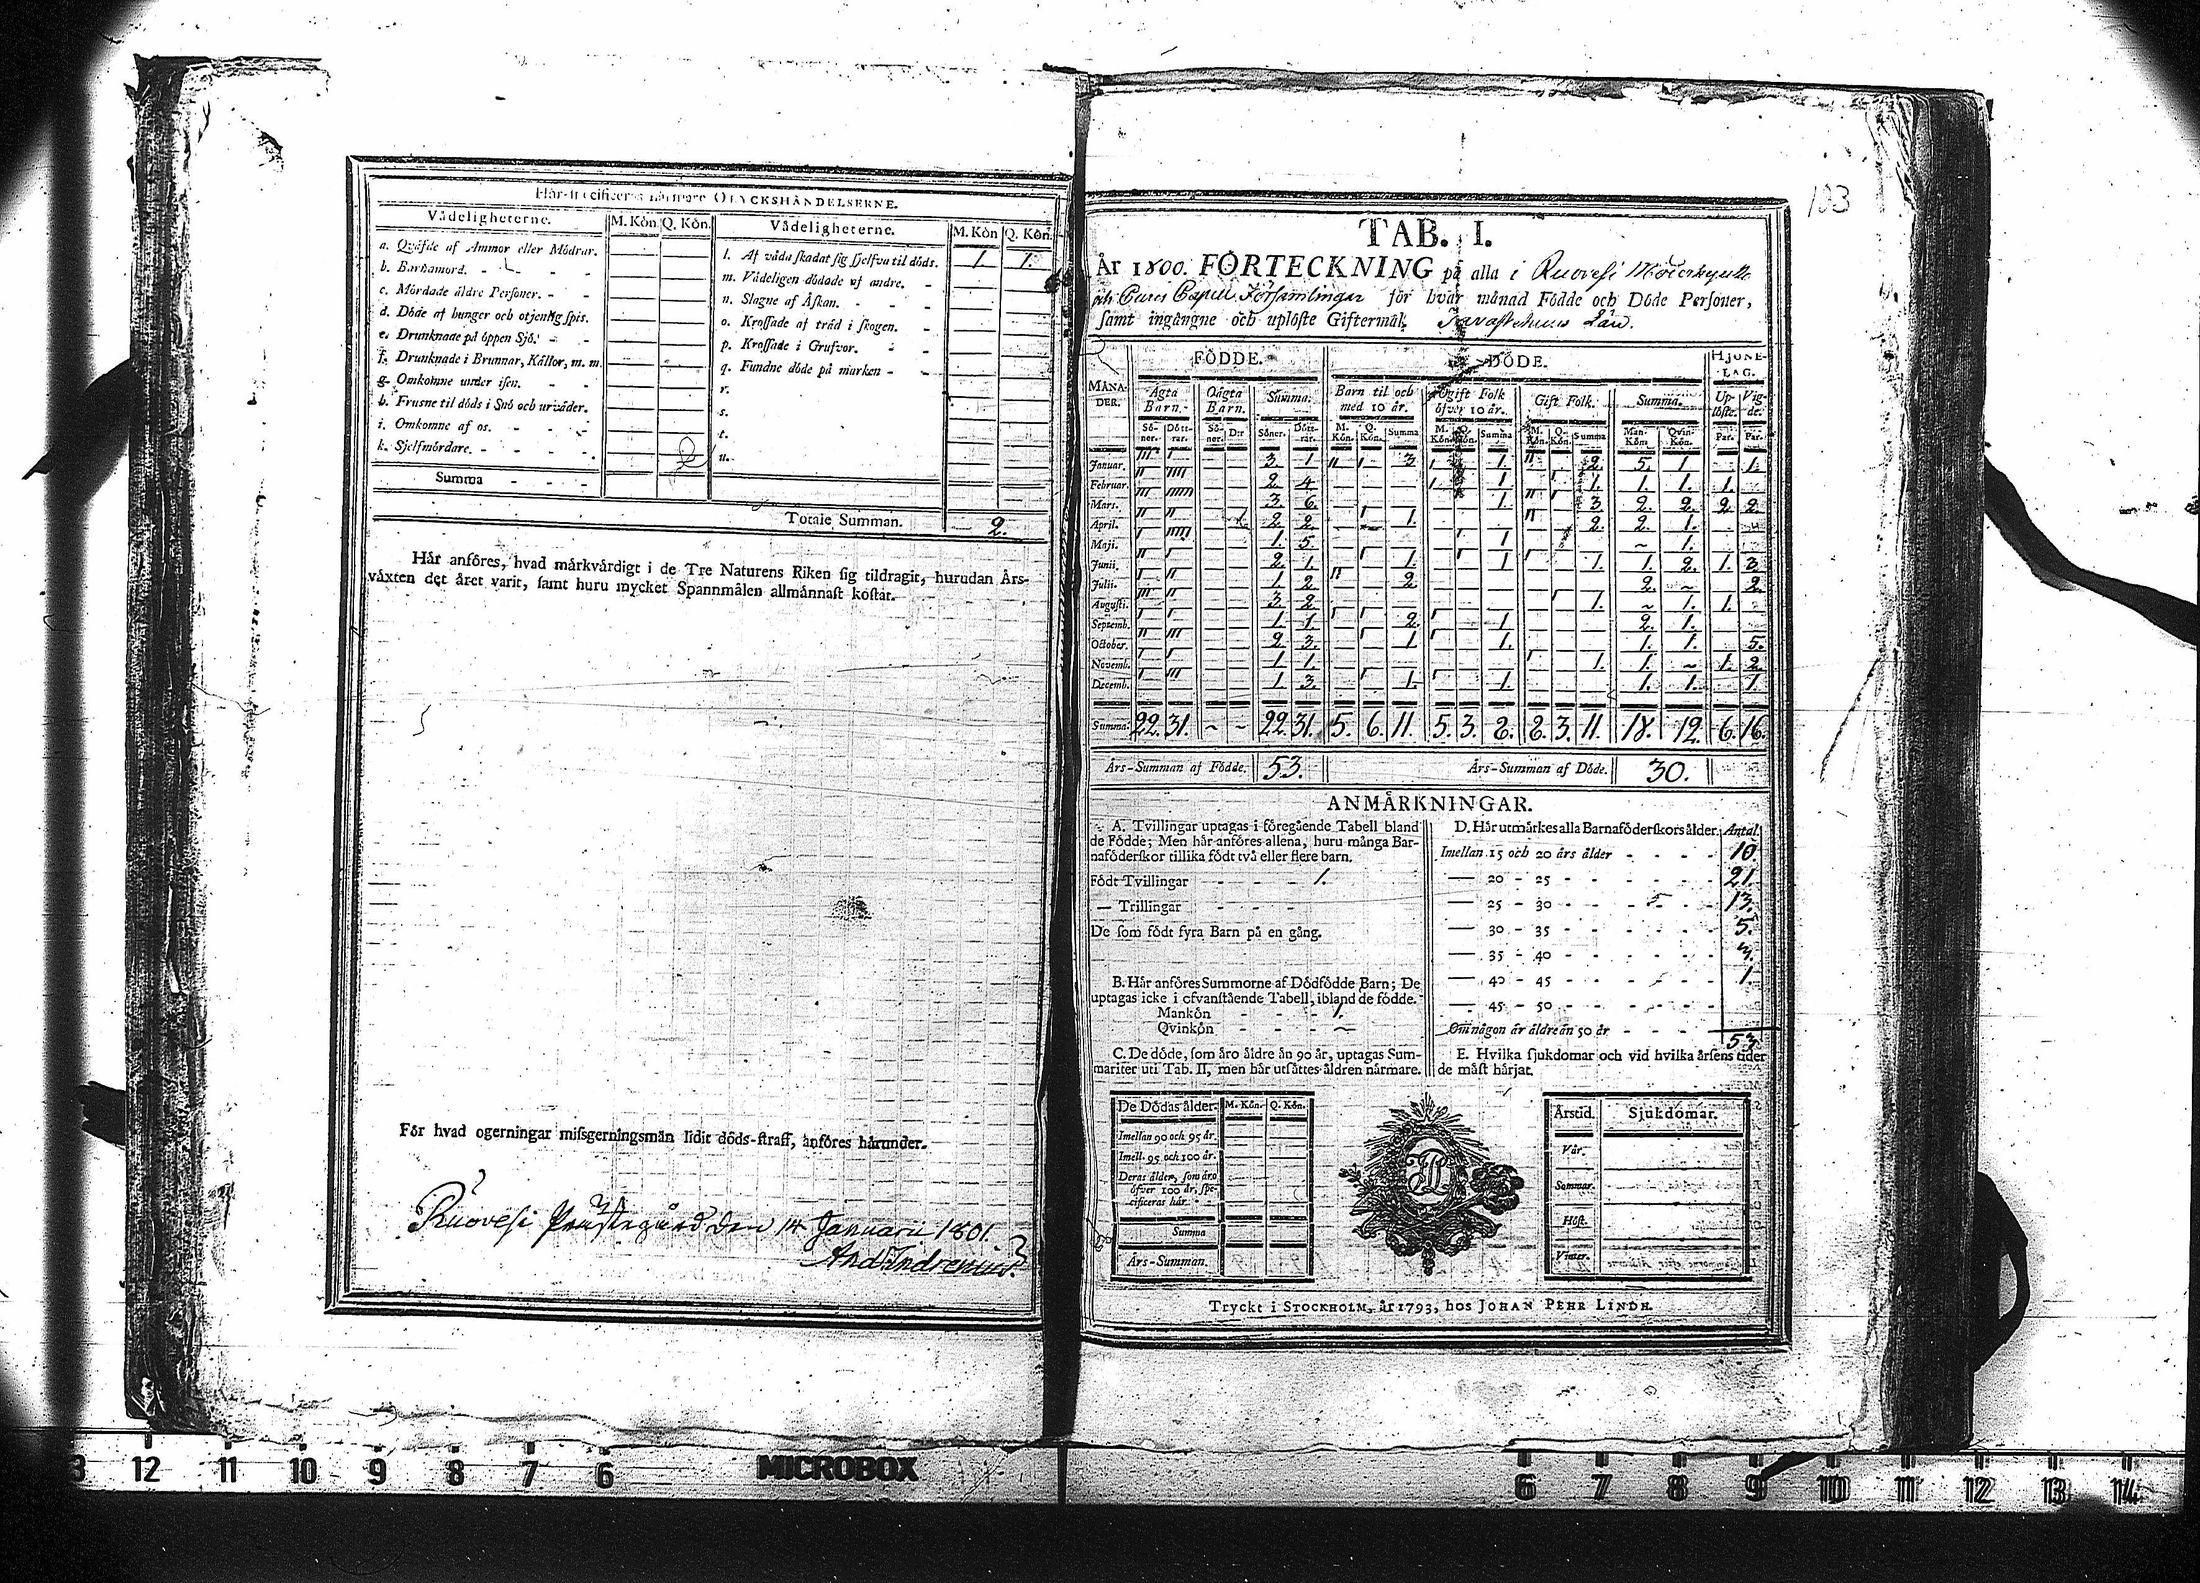 Här specificeras närmare OLYCKSHÄNDELSERNE.
Vådeligheterne. M. Kön. Q. Kön. Vådeligheterne. M. Kön Q. Kön.
a. Qväfde af Ammor eller Mödrar.
b. Barnamord. - - - -
c. Mördade äldre Personer. - -
d. Döde af hunger och otjenlig spis.
e. Drunknade på öppen Sjö. - -
f. Drunknade i Brunnar, Källor, m. m.
g. Omkomne under isen. - -
h. Frusne til döds i Snö och urväder.
i. Omkomne af os. - - - -
k. Sjelfmördare. - - - -
Summa - - - -
l. Af våda skadat sig sjelfva til döds. 1 1.
m. Vådeligen dödade af andre. -
n. Slagne af Åskan. - - -
o. Krossade af träd i skogen. -
p. Krossade i Grufvor. - -
q. Fundne döde på marken - -
r.
s.
t.
u.
Totale Summan. 2.
Här anföres, hvad märkvärdigt i de Tre Naturens Riken sig tildragit, hurudan Års-
växten det året varit, samt huru mycket Spannmålen allmännast kostat.
För hvad ogerningar missgerningsmän lidit döds-straff, anföres härunder.
Ruovesi Prästegård den 14 Januarii 1801.
103
TAB. I.
År 1800. FÖRTECKNING på alla i Ruovesi
Capell Församlingar för hvar månad Födde och Döde Personer,
samt ingångne och uplöste Giftermål. Tavastehuus Län.
FÖDDE. DÖDE. HJONE-LAG.
MÅNA-DER. Ägta Barn. Oägta Barn. Summa. Barn til och med 10 år. Ogift Folk öfver 10 år. Gift Folk. Summa. Up-löste. Vig-de.
Sö-ner. Dött-rar. Sö-ner. D:r Söner. Dött-rar. M. Kön. Q. Kön. Summa M. Kön. Q. Kön. Summa M. Kön. Q. Kön. Summa Man-Kön. Qvin-Kön. Par. Par.
Januar. 3. 1 3 1. 2. 5. 1. 1.
Februar. 2 4 1 1. 1. 1. 1.
Mars. 3 6. 1. 3 2. 2. 2 2.
April. 2 2. 1. 2. 2. 1.
Maji. 1. 5. 1 ~ 1.
Junii. 2. 1. 1. 1 1. 1. 2. 1. 3
Julii. 1 2 2 2. ~ 2.
Augusti. 3 2 1. ~ 1. 1.
Septemb. 1 1. 2. 1 2. 1.
October. 2 3. 1 1. 1. 1. 5.
Novemb. 1 1. 1. 1. ~ 1. 2.
Decemb. 1 3. 1. 1. 1. 1. 1
Summa. 22. 31. ~ ~ 22. 31. 5. 6. 11. 5. 3. 8. 8. 3. 11. 18. 12. 6. 16.
Års-Summan af Födde. 53. Års-Summan af Döde. 30.
ANMÄRKNINGAR.
A. Tvillingar uptagas i föregående Tabell bland
de Födde; Men här anföres allena, huru många Bar-
naföderskor tillika födt två eller flere barn.
Födt Tvillingar - - - 1.
— Trillingar - - -
De som födt fyra Barn på en gång.
B. Här anföres Summorne af Dödfödde Barn; De
uptagas icke i ofvanstående Tabell, ibland de födde.
Mankön - - - 1.
Qvinkön - - - ~
C. De döde, som äro äldre än 90 år, uptagas Sum-
mariter uti Tab. II, men här utsättes åldren närmare.
D. Här utmärkes alla Barnaföderskors ålder. Antal.
Imellan 15 och 20 års ålder - - - - 10.
— 20 - 25 - - - - - 21.
— 25 - 30 - - - - - 13.
— 30 - 35 - - - - - 5.
— 35 - 40 - - - - - 3.
— 40 - 45 - - - - - 1.
— 45 - 50 - - - - -
Om någon är äldre än 50 år - - - -
53.
E. Hvilka sjukdomar och vid hvilka årsens tider
de mäst härjat.
De Dödas ålder. M. Kön. Q. Kön.
Imellan 90 och 95 år.
Imell. 95 och 100 år.
Deras ålder, som äro
öfver 100 år, spe-
cificeras här. - -
Summa
Års-Summan.
Årstid. Sjukdomar.
Vår.
Sommar.
Höst.
Vinter.
Tryckt i STOCKHOLM, år 1793, hos JOHAN PEHR LINDH.
13 12 11 10 9 8 7 6 MICROBOX 6 7 8 9 10 11 12 13 14